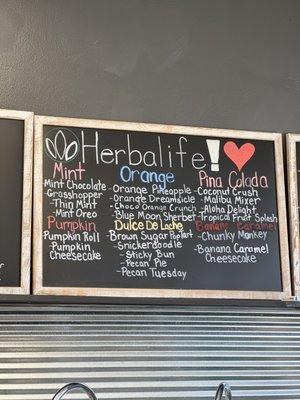 Herbalife!
Mint
Mint Chocolate
-Grasshopper
-Thin Mint
-Mint Oreo
Pumpkin
Pumpkin Roll
-Pumpkin
Cheesecake
Orange
-Orange Pineapple
-Orange Dreamsicle
-Choco Orange Crunch
-Blue Moon Sherbet
Dulce De Leche
-Brown Sugar Poptart
-Snickerdoodle
-Sticky Bun
-Pecan Pie
-Pecan Tuesday
Pina Colada
-Coconut Crush
-Malibu Mixer
-Aloha Delight
-Tropica Fruit Splash
Banana Caramel
-Chunky Monkey
-Banana Caramel
Cheesecake